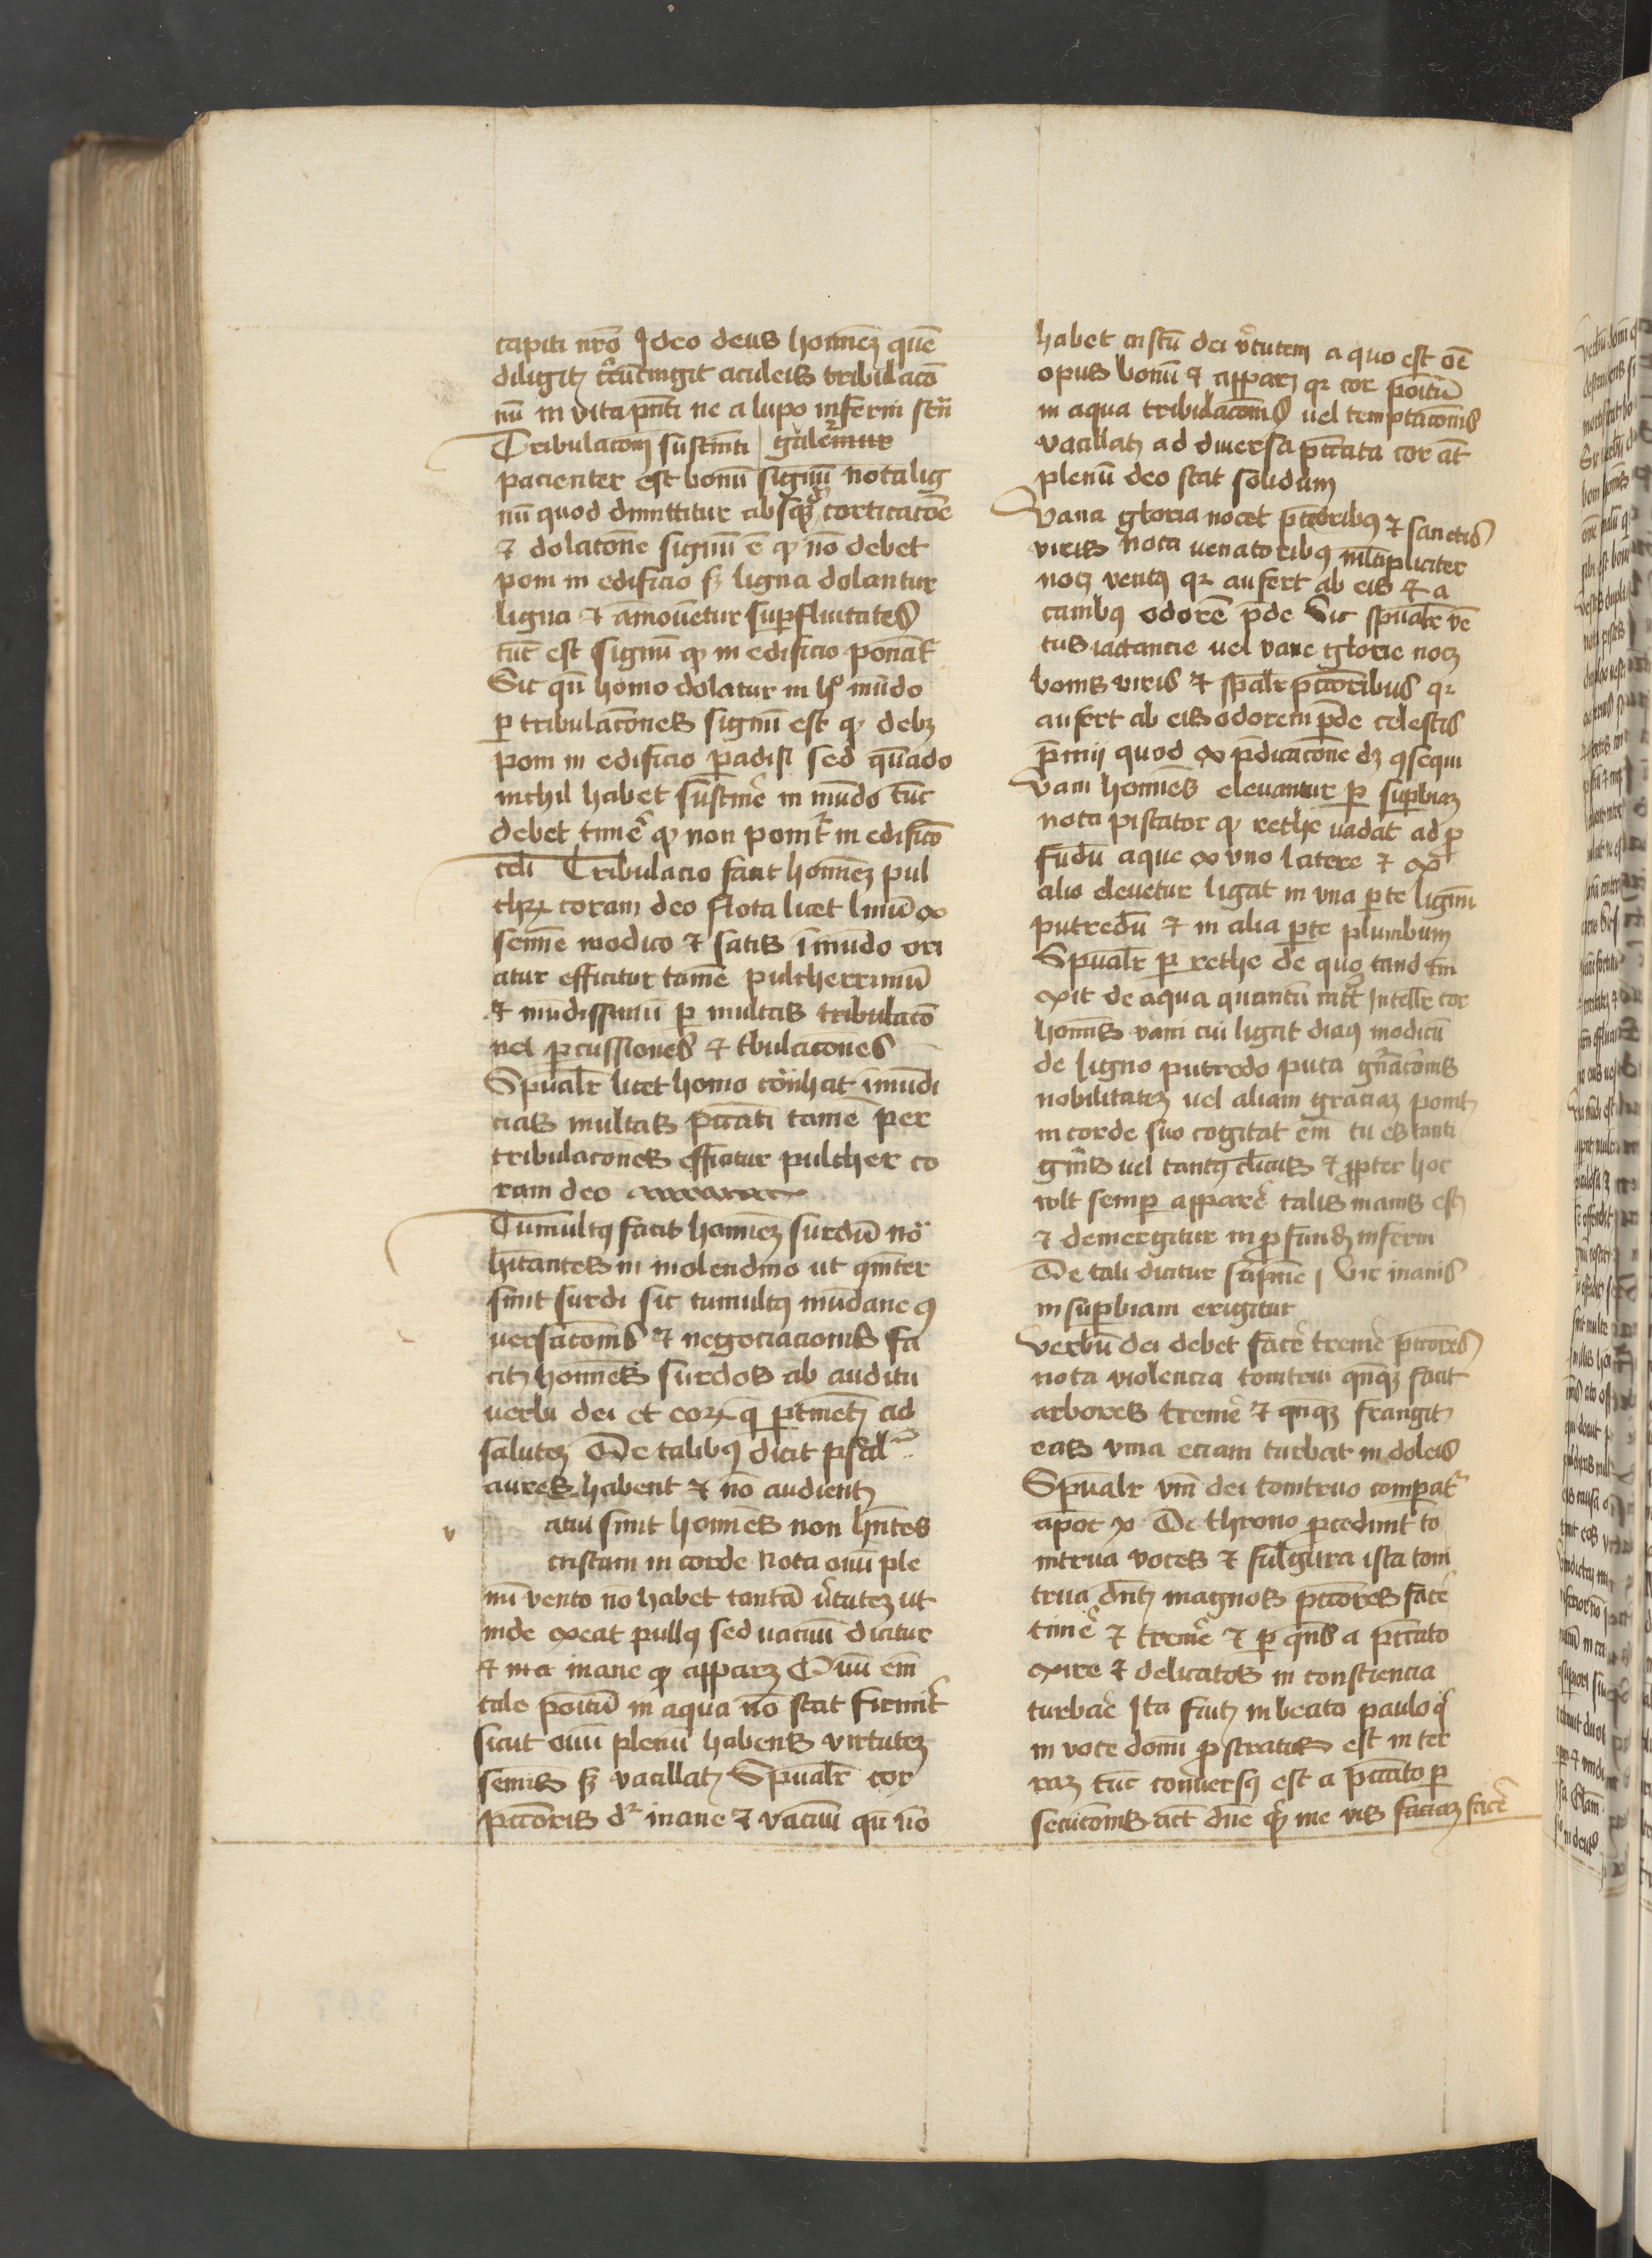 capiti nr̄o Ideo deus hoīnem quē
diligit circūcingit aculeis tribulacō
nū in vita pn̄ti ne a lupo inferni
Tribulacōnem sustineri
pacienter est bonū signū nota lig
nū quod dimittitur absque corticacōe
et dolatone signū ē quod nō debet
poni in edificio sed ligna dolantur
ligna et amouētur superfluitates
tūc est signū quod in edificio ponāt
Sic qn̄ homo dolatur in hoc mūdo
per tribulacōnes signū est quod debet
poni in edificio padisi sed quādo
nichil habet sustinere in mūdo tūc
debet timere quod non ponit in edificō
celi Tribulacio facit hoīnem pul
chrum coram deo Nota licet linū ex
semīe modico et satis īmūdo ori
atur efficitur tamē pulcherrimū
et mūdissimū per multas tribulacō
nes percussiones et tbulacones
Spūalr licet homo cōtrahat īmūdi
cias multas pccāti tamē per
tribulacones efficitur pulcher co
ram deo
Tumultus facit hoīnem surdū nō
hītantes in molendino ut
sūnt surdi sic tumultus mūdane con
uersacōnis et negociacionis fa
cit hoīnes surdos ab auditu
uerbi dei et eorum que pertinēt ad
salutem De talibus dicit psal
aures habent et nō audient
v acui sūnt hoīnes non hn̄tes
cristum in corde Nota ouū ple
nū vento nō habet tantā virtutem ut
inde exeat pullus sed uacuū dicitur
et inane quod apparet Ouū em̄
tale positū in aqua nō stat firmiter
sicut ouū plenū habens virtutem
semīs sed vacillat Spūalr cor
pccōris dr inane et vacuū qn̄ nō
habet cristū dei virtutem a quo est oē
opus bonū quod apparet quia cor positū
in aqua tribulacōnis uel temptacōnis
vacillat ad diuersa pccāta cor āt
plenū deo stat solidum
Vana gloria nocet pccoribus et sanctis
viris nota uenatoribus multipliciter
nocet ventus quia aufert ab eis et a
canibus odorē prede Sic spūalr vē
tus iactancie uel vane glorie nocet
bonis viris et spālr pccōribus quia
aufert ab eis odorem prede celestis
premij quod ex predicacōne debet consequi
Vani homīes eleuantur per superbiam
nota piscator quod rethe uadat ad pro
fūdū aque ex vno latere et ex
alio eleuetur ligat in vna parte lignū
putredū et in alia parte plumbum
Spūalr per rethe de
exit de aqua quantū intellr cor
homīs vani cui ligat diaus modicū
de ligno putredo puta gn̄acōnis
nobilitatem uel aliam graciam ponit
in corde suo cogitat em̄ tu es tanti
gn̄is uel tantus clicus et propter hoc
wlt semper apparere talis inanis est
et demergitur in profundum inferni
De tali dicitur Vir inanis
in superbiam erigitur
Verbū dei debet facere tremere pccōres
nota violencia tonitrui quandoque facit
arbores tremere et quandoque frangit
eas vina eciam turbat in doleis
Spūalr vm̄ dei tonitruo comparat
apoc x De throno procedunt to
nitrua voces et fulgura ista toni
trua dn̄t magnos pccōres facere
timere et tremere et per qn̄s a pccāto
exire et delicatos in consciencia
turbare Ita fuit in beato paulo qui
in voce domī prostratus est in ter
ram tūc conuersus est a pccāto per
secucōnis dicit dn̄e quid me vis faciam facere